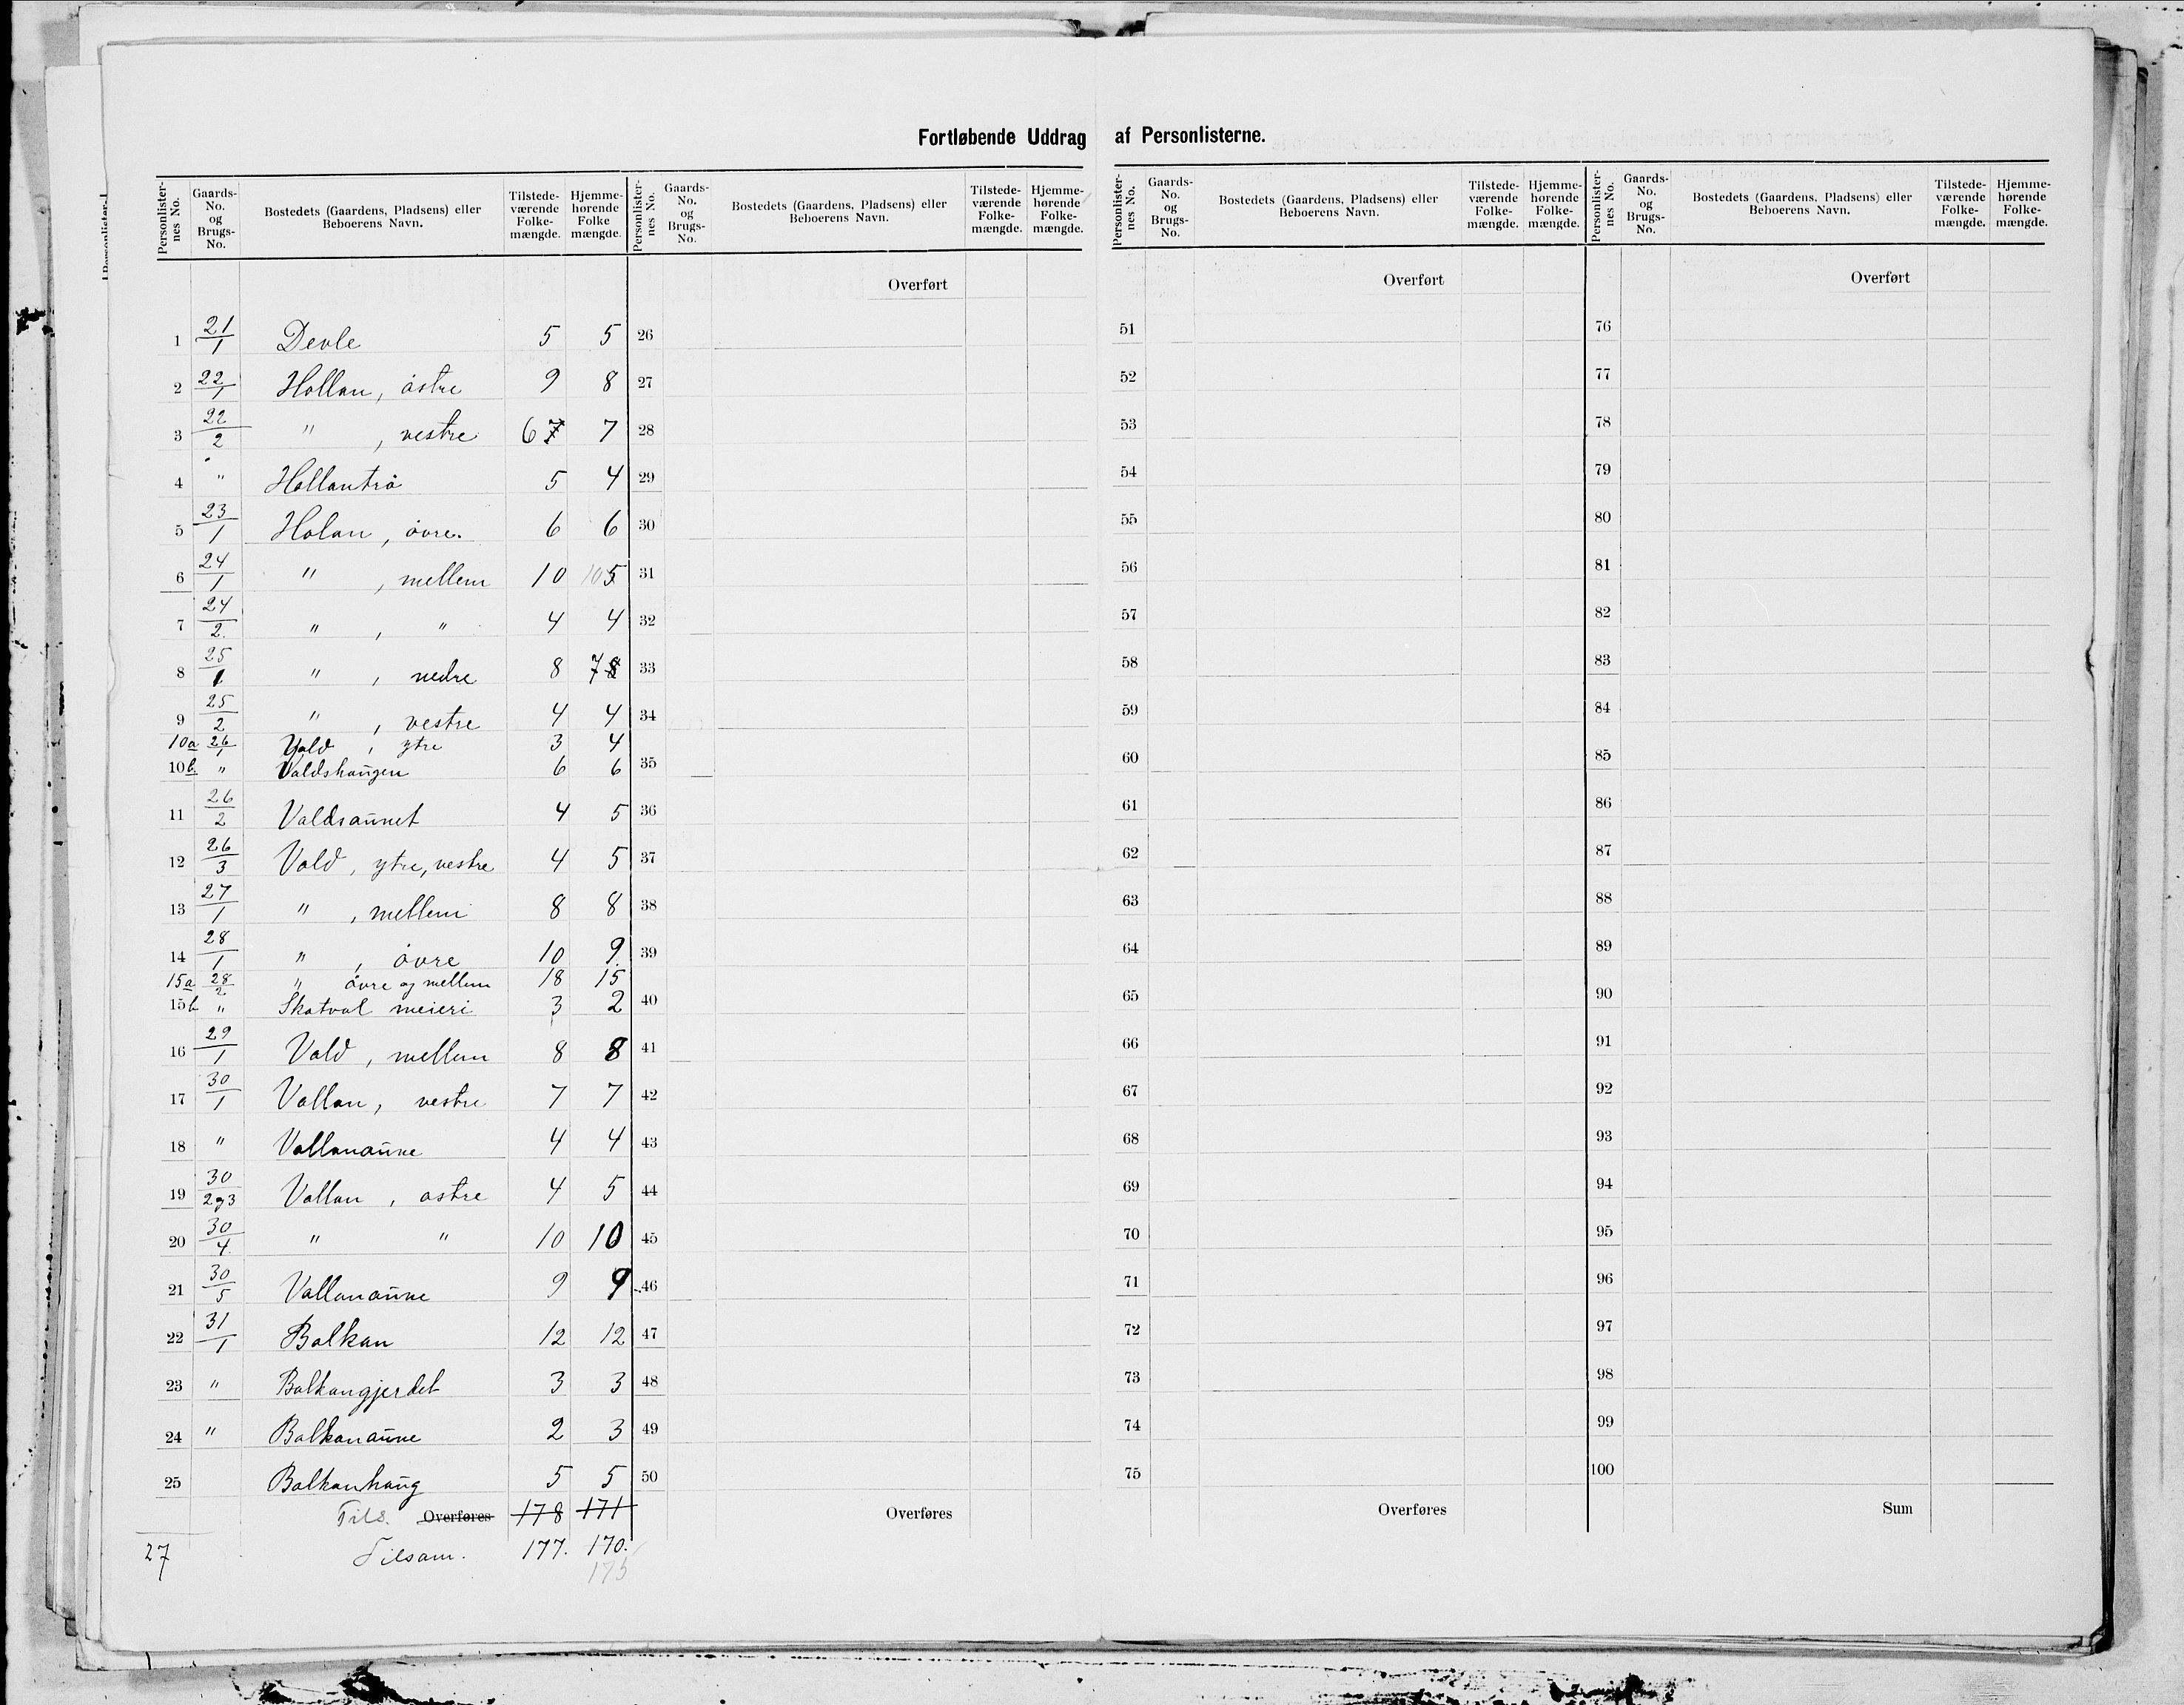 Fortløbende Uddrag af Personlisterne.
Personlister-nes No. Gaards-No. og Brugs-No. Bostedets (Gaardens, Pladsens) eller Beboerens Navn. Tilstede-værende Folke-mængde. Hjemme-hørende Folke mængde.
Personlister-nes No. Gaards-No. og Brugs-No. Bostedets (Gaardens, Pladsens) eller Beboerens Navn. Tilstede-værende Folke-mængde. Hjemme-hørende Folke-mængde.
Personlister-nes No. Gaards-No. og Brugs-No. Bostedets (Gaardens, Pladsens) eller Beboerens Navn. Tilstede-værende Folke-mængde. Hjemme-hørende Folke-mængde.
Personlister-nes No. Gaards-No. og Brugs-No. Bostedets (Gaardens, Pladsens) eller Beboerens Navn. Tilstede-værende Folke-mængde. Hjemme-hørende Folke-mængde.
Overført Overført Overført
1 21/1 Devle 5 5 26 51 76
2 22/1 Hollan, østre 9 8 27 52 77
3 22/2 " , vestre 6 7 7 28 53 78
4 " Hollantrø 5 4 29 54 79
5 23/1 Holan, øvre. 6 6 30 55 80
6 24/1 " , mellem 10 10 5 31 56 81
7 24/2. " , " 4 4 32 57 82
8 25/1 " , nedre 8 7 8 33 58 83
9 25/2 " , vestre 4 4 34 59 84
10a 26/1 Vold , ytre 3 4
10b " Voldshaugen 6 6 35 60 85
11 26/2 Voldsaunet 4 5 36 61 86
12 26/3 Vold, ytre, vestre 4 5 37 62 87
13 27/1 " , mellem 8 8 38 63 88
14 28/1 " , øvre 10 9 39 64 89
15a 28/2 " øvre og mellem 18 15
15b " Skatval meieri 3 2 40 65 90
16 29/1 Vold, mellem 8 8 41 66 91
17 30/1 Vollan, vestre 7 7 42 67 92
18 " Vollanaune 4 4 43 68 93
19 30/2 og 3 Vollan , østre 4 5 44 69 94
20 30/4 " " 10 10 45 70 95
21 30/5 Vollanaune 9 9 46 71 96
22 31/1 Balkan 12 12 47 72 97
23 " Balkangjerdet 3 3 48 73 98
24 " Balkanaune 2 3 49 74 99
25 Balkanhaug 5 5 50 75 100
Tils. Overføres 178 171 Overføres Overføres Sum
27 Tilsam. 177. 170.
175